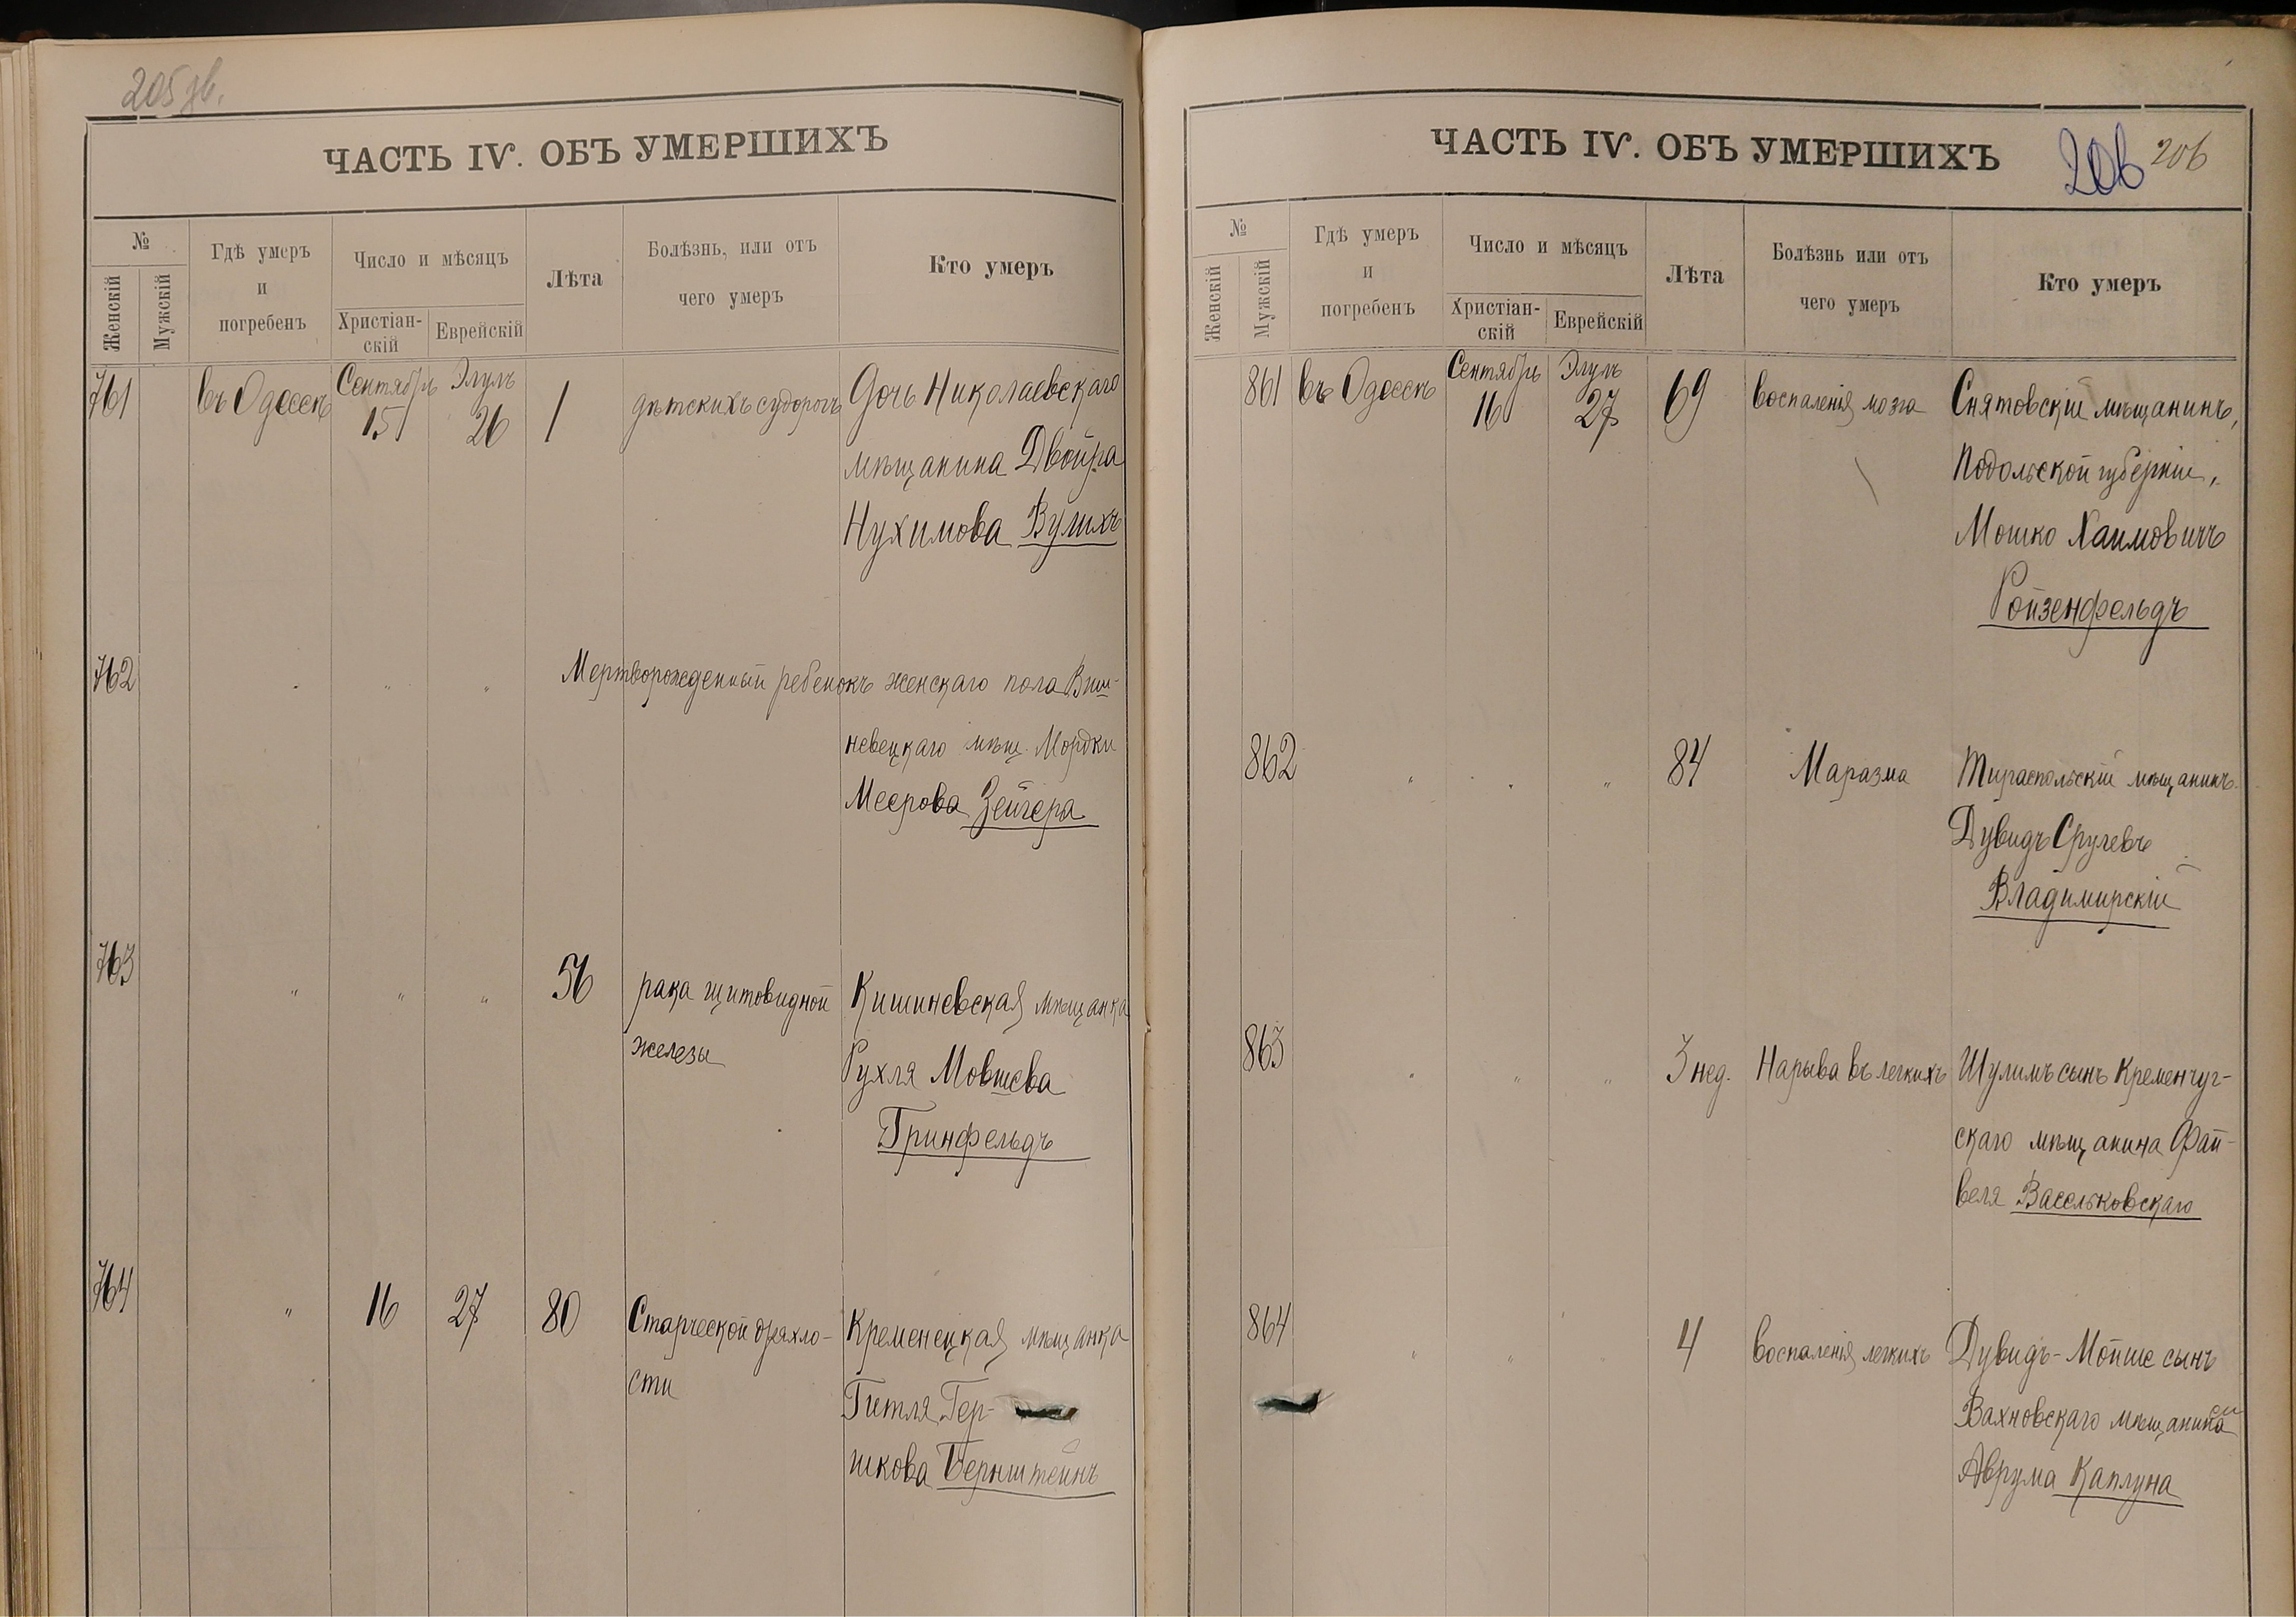 205 об.
ЧАСТЬ IV. ОБЪ УМЕРШИХЪ
№
Женскій
Мужскій
Гдѣ умеръ
и
погребенъ
Число и мѣсяцъ
Христіан-
скій
Еврейскій
Лѣта
Болѣзнь, или отъ
чего умеръ
Кто умеръ
761 въ Одессѣ Сентябрь 15 Элулъ 26 1 дѣтскихъ судорогъ Дочь Николаевскаго
мѣщанина Двойра
Нухимова Вулихъ
762 " " " Мертворожденный ребенокъ женскаго пола Виш-
невецкаго мѣщ. Мордки
Меерова Зейгера
763 " " " 56 рака щитовидной Кишиневская мѣщанка
железы Рухля Мовшева
Гринфельдъ
764 " 16 27 80 Старческой дряхло- Кременецкая мѣщанка
сти Гитля Гер-
шкова Бернштейнъ
ЧАСТЬ IV. ОБЪ УМЕРШИХЪ
206 206
№
Женскій
Мужскій
Гдѣ умеръ
и
погребенъ
Число и мѣсяцъ
Христіан-
скій
Еврейскій
Лѣта
Болѣзнь или отъ
чего умеръ
Кто умеръ
861 въ Одессѣ Сентябрь 16 Элулъ 27 69 воспаленія мозга Снятовскій мѣщанинъ,
Подольской губерніи,
Мошко Хаимовичъ
Ройзенфельдъ
862 " " " 84 Маразма Тираспольскій мѣщанинъ
Дувидъ Срулевъ
Владимирскій
863 " " " 3 нед. Нарыва въ легкихъ Шулимъ сынъ Кременчуг-
скаго мѣщанина Фай-
веля Васельковскаго
864 " " " 4 воспаленія легкихъ Дувидъ-Мойше сынъ
Вахновскаго мѣщанина
Аврума Каплуна